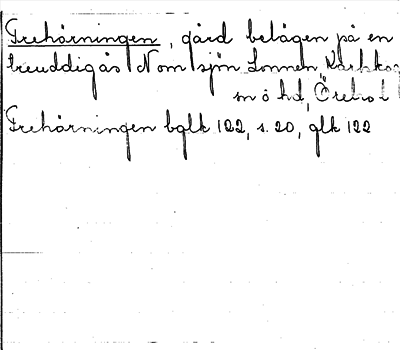 Trehörningen, gård belägen på en
treuddig ås N om sjön Lonnen, Karlsko
m ö hd, Örebro l
Trehörningen bglk 122, s. 20, glk 122